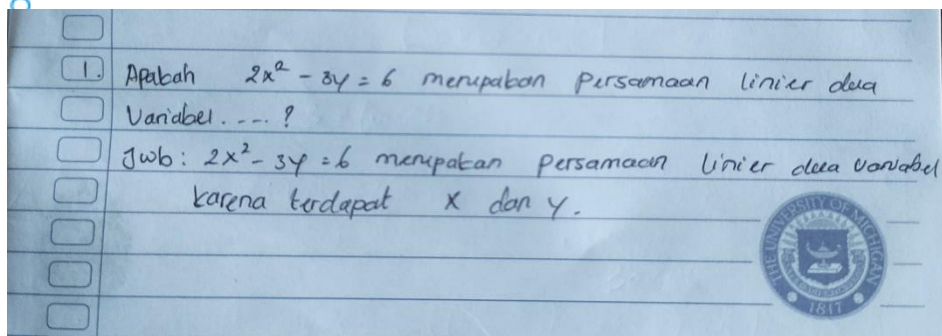 1. Apakah 2x² - 3y = 6 merupakan Persamaan linier dua
Variabel . . . . ?
Jwb : 2x² - 3y = 6 merupakan Persamaan linier dua variabel
karena terdapat x dan y.
THE UNIVERSITY OF MICHIGAN
1817